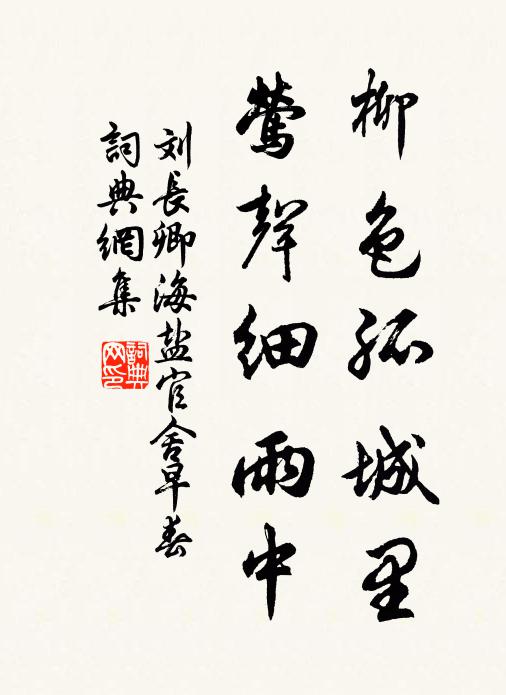 柳色孤城里
莺聲细雨中
刘長卿海盐官舍早春
詞典網集
詞典网印